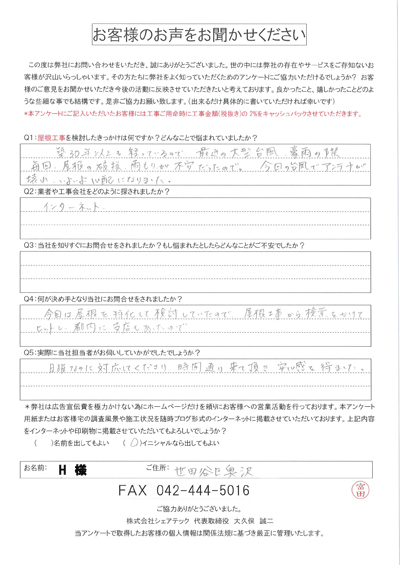 お客様のお声をお聞かせください
この度は弊社にお問い合わせをいただき、誠にありがとうございました。世の中には弊社の存在やサービスをご存知ないお
客様が沢山いらっしゃいます。その方たちに弊社をよく知っていただくためのアンケートにご協力いただけるでしょうか？ お客
様のご意見をお聞かせいただき今後の活動に反映させていただきたいと考えております。良かったこと、嬉しかったことどのよ
うな些細な事でも結構です。是非ご協力お願い致します。（出来るだけ具体的に書いていただければ幸いです）
*本アンケートにご記入いただいたお客様には工事ご用命時に工事金額(税抜き)の2%をキャッシュバックさせていただきます。
Q1:屋根工事を検討したきっかけは何ですか？どんなことで悩まれていましたか？
築30年以上も経っているので 最近の大型台風、豪雨の際
毎回、屋根の破損、雨もりが不安だったので。 今回の台風でアンテナが
壊れ、いよいよ心配になりました。
Q2:業者や工事会社をどのように探されましたか？
インターネット
Q3:当社を知りすぐにお問合せをされましたか？もし悩まれたとしたらどんなことがご不安でしたか？
Q4:何が決め手となり当社にお問合せをされましたか？
今回は屋根を特化して検討していたので、屋根工事から検索をかけて
ヒットし、都内に支店もあったので
Q5:実際に当社担当者がお伺いしていかがでしたでしょうか？
日程なのに対応してくださり 時間通り来て頂き 安心感を得ました。
*弊社は広告宣伝費を極力かけない為にホームページだけを頼りにお客様への営業活動を行っております。本アンケート
用紙またはお客様宅の調査風景や施工状況を随時ブログ形式のインターネットに掲載させていただいております。上記内容
をインターネットや印刷物に掲載させていただいてもよろしいでしょうか？
（ ）名前を出してもよい （○）イニシャルなら出してもよい
お名前: H 様 ご住所: 世田谷区奥沢
FAX 042-444-5016
富田
ご協力ありがとうございました。
株式会社シェアテック 代表取締役 大久保 誠二
当アンケートで取得したお客様の個人情報は関係法規に基づき厳正に管理いたします。